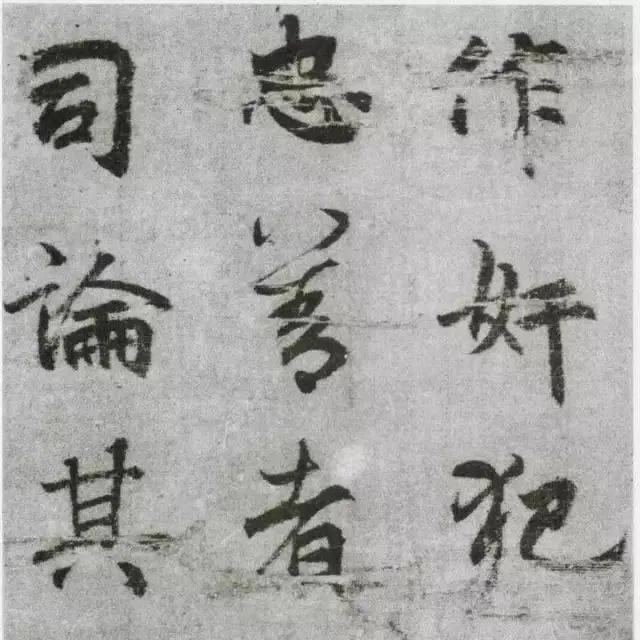 作奸犯
忠善者
司論其